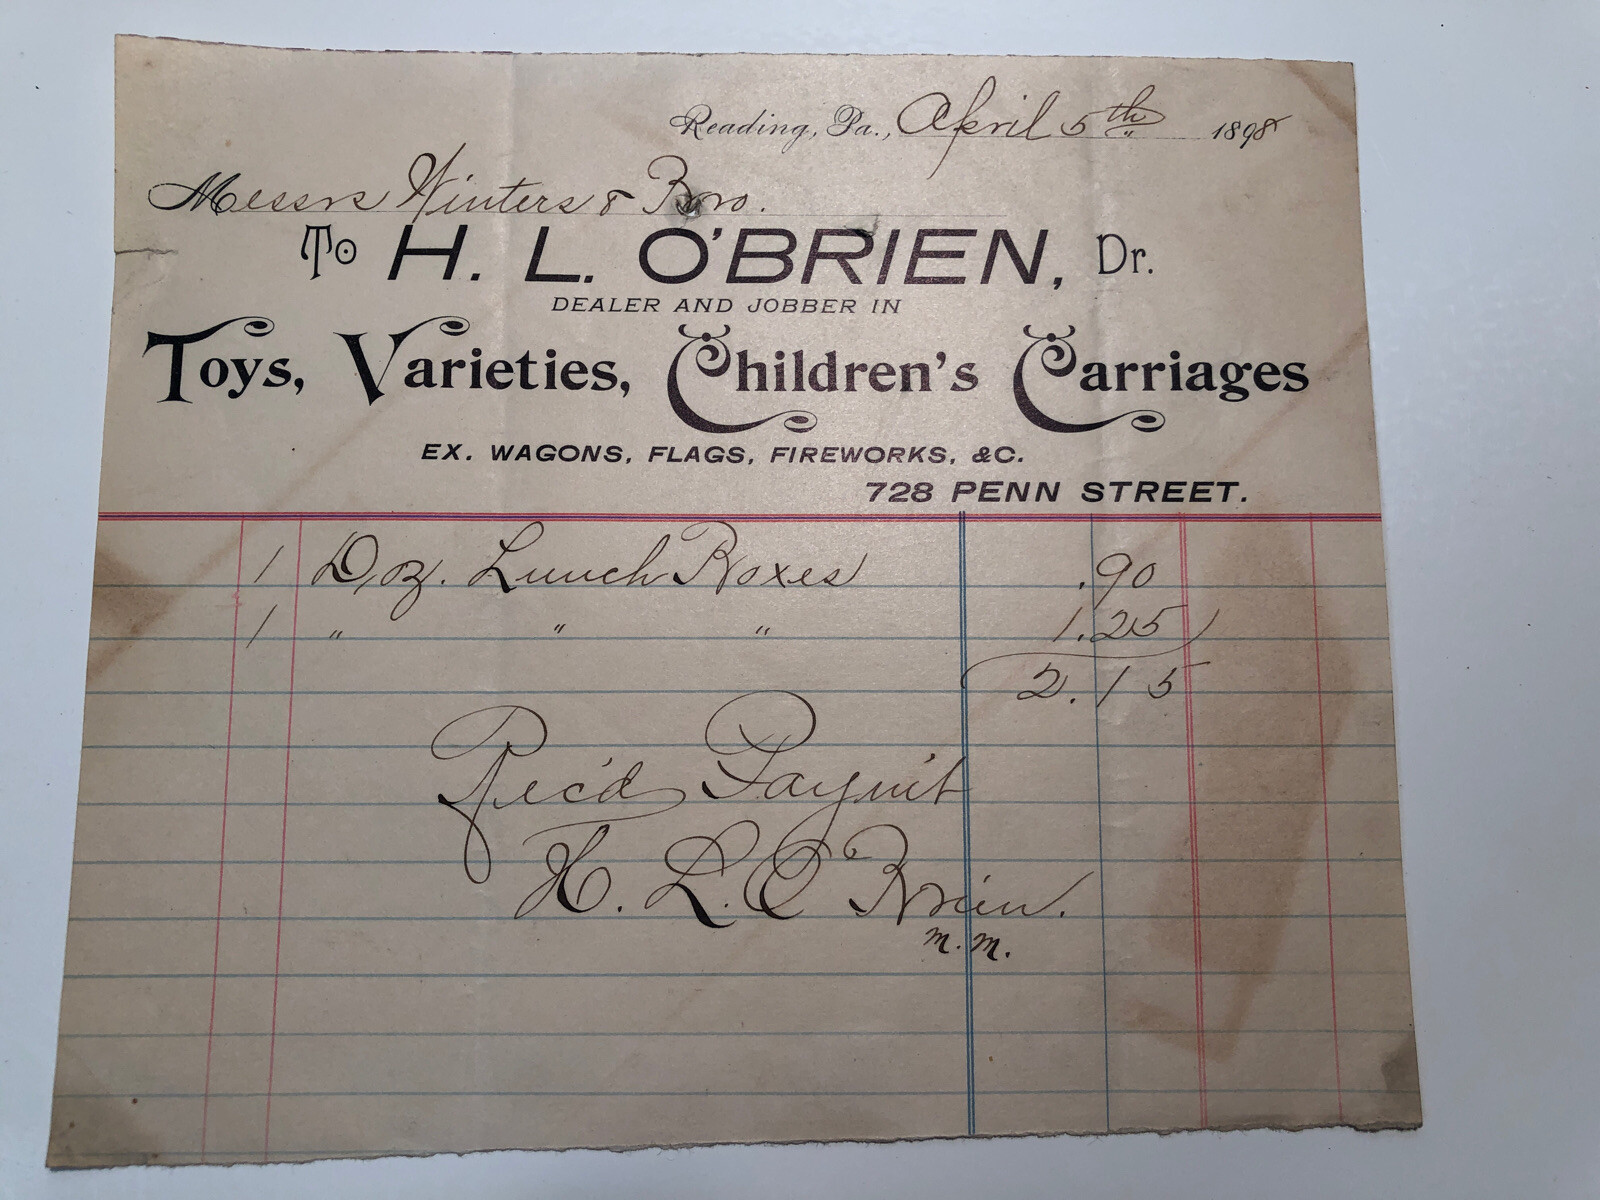 Reading, Pa., April 5th 1898
Messrs Winters & Bro.
To H. L. O'BRIEN, Dr.
DEALER AND JOBBER IN
Toys, Varieties, Children's Carriages
EX. WAGONS, FLAGS, FIREWORKS, &C.
728 PENN STREET.
1 Doz. Lunch Boxes .90
1 " " " 1.25
2.15
Rec'd Paym't
H. L. O'Brien.
m. m.